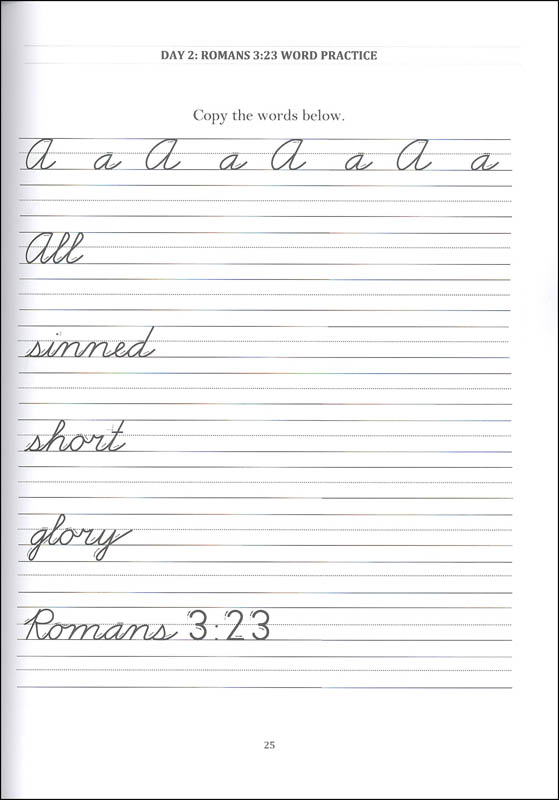 DAY 2: ROMANS 3:23 WORD PRACTICE
Copy the words below.
A a A a A a A a
All
sinned
short
glory
Romans 3:23
25